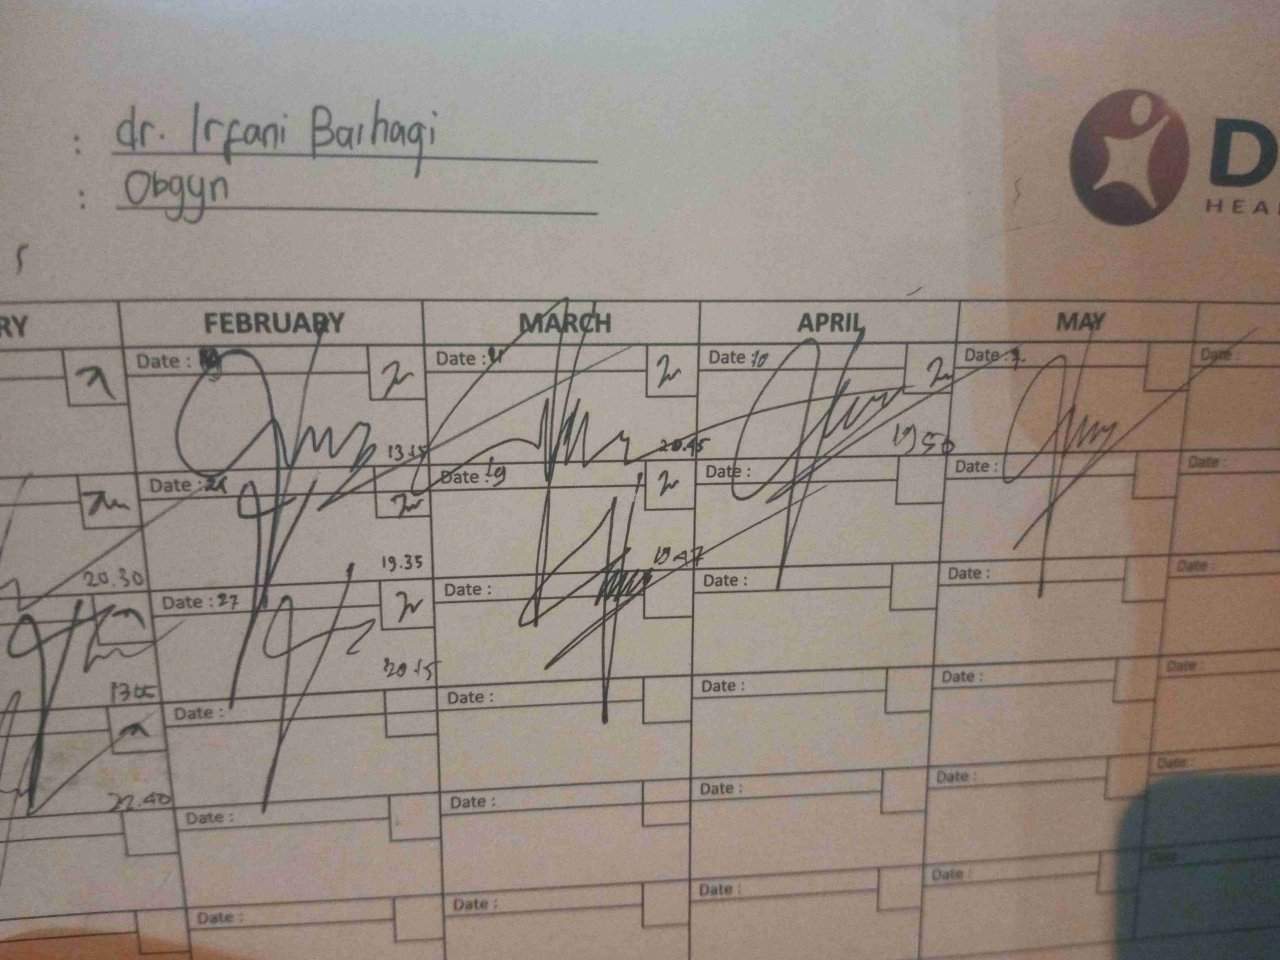 : dr. Irfani Baihaqi
: Obgyn
D
HEA
RY FEBRUARY MARCH APRIL MAY
Date : Date : 11 Date : 10 Date : 7 Date :
13.15 20.45 19 50
Date : 21 Date : 19 Date : Date : Date :
20.30 19.35 19 47
Date : 27 Date : Date : Date : Date :
20 15
Date : Date : Date : Date : Date :
22.40
Date : Date : Date : Date : Date :
Date : Date : Date : Date : Date :